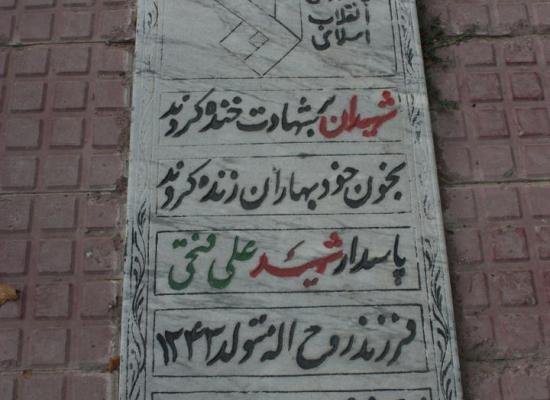 انقلاب
اسلامی
شهیدان بشهادت خنده کردند
بخون خود بهاران زنده کردند
پاسدار شهید علی فتحی
فرزند روح اله متولد ۱۲۴۳